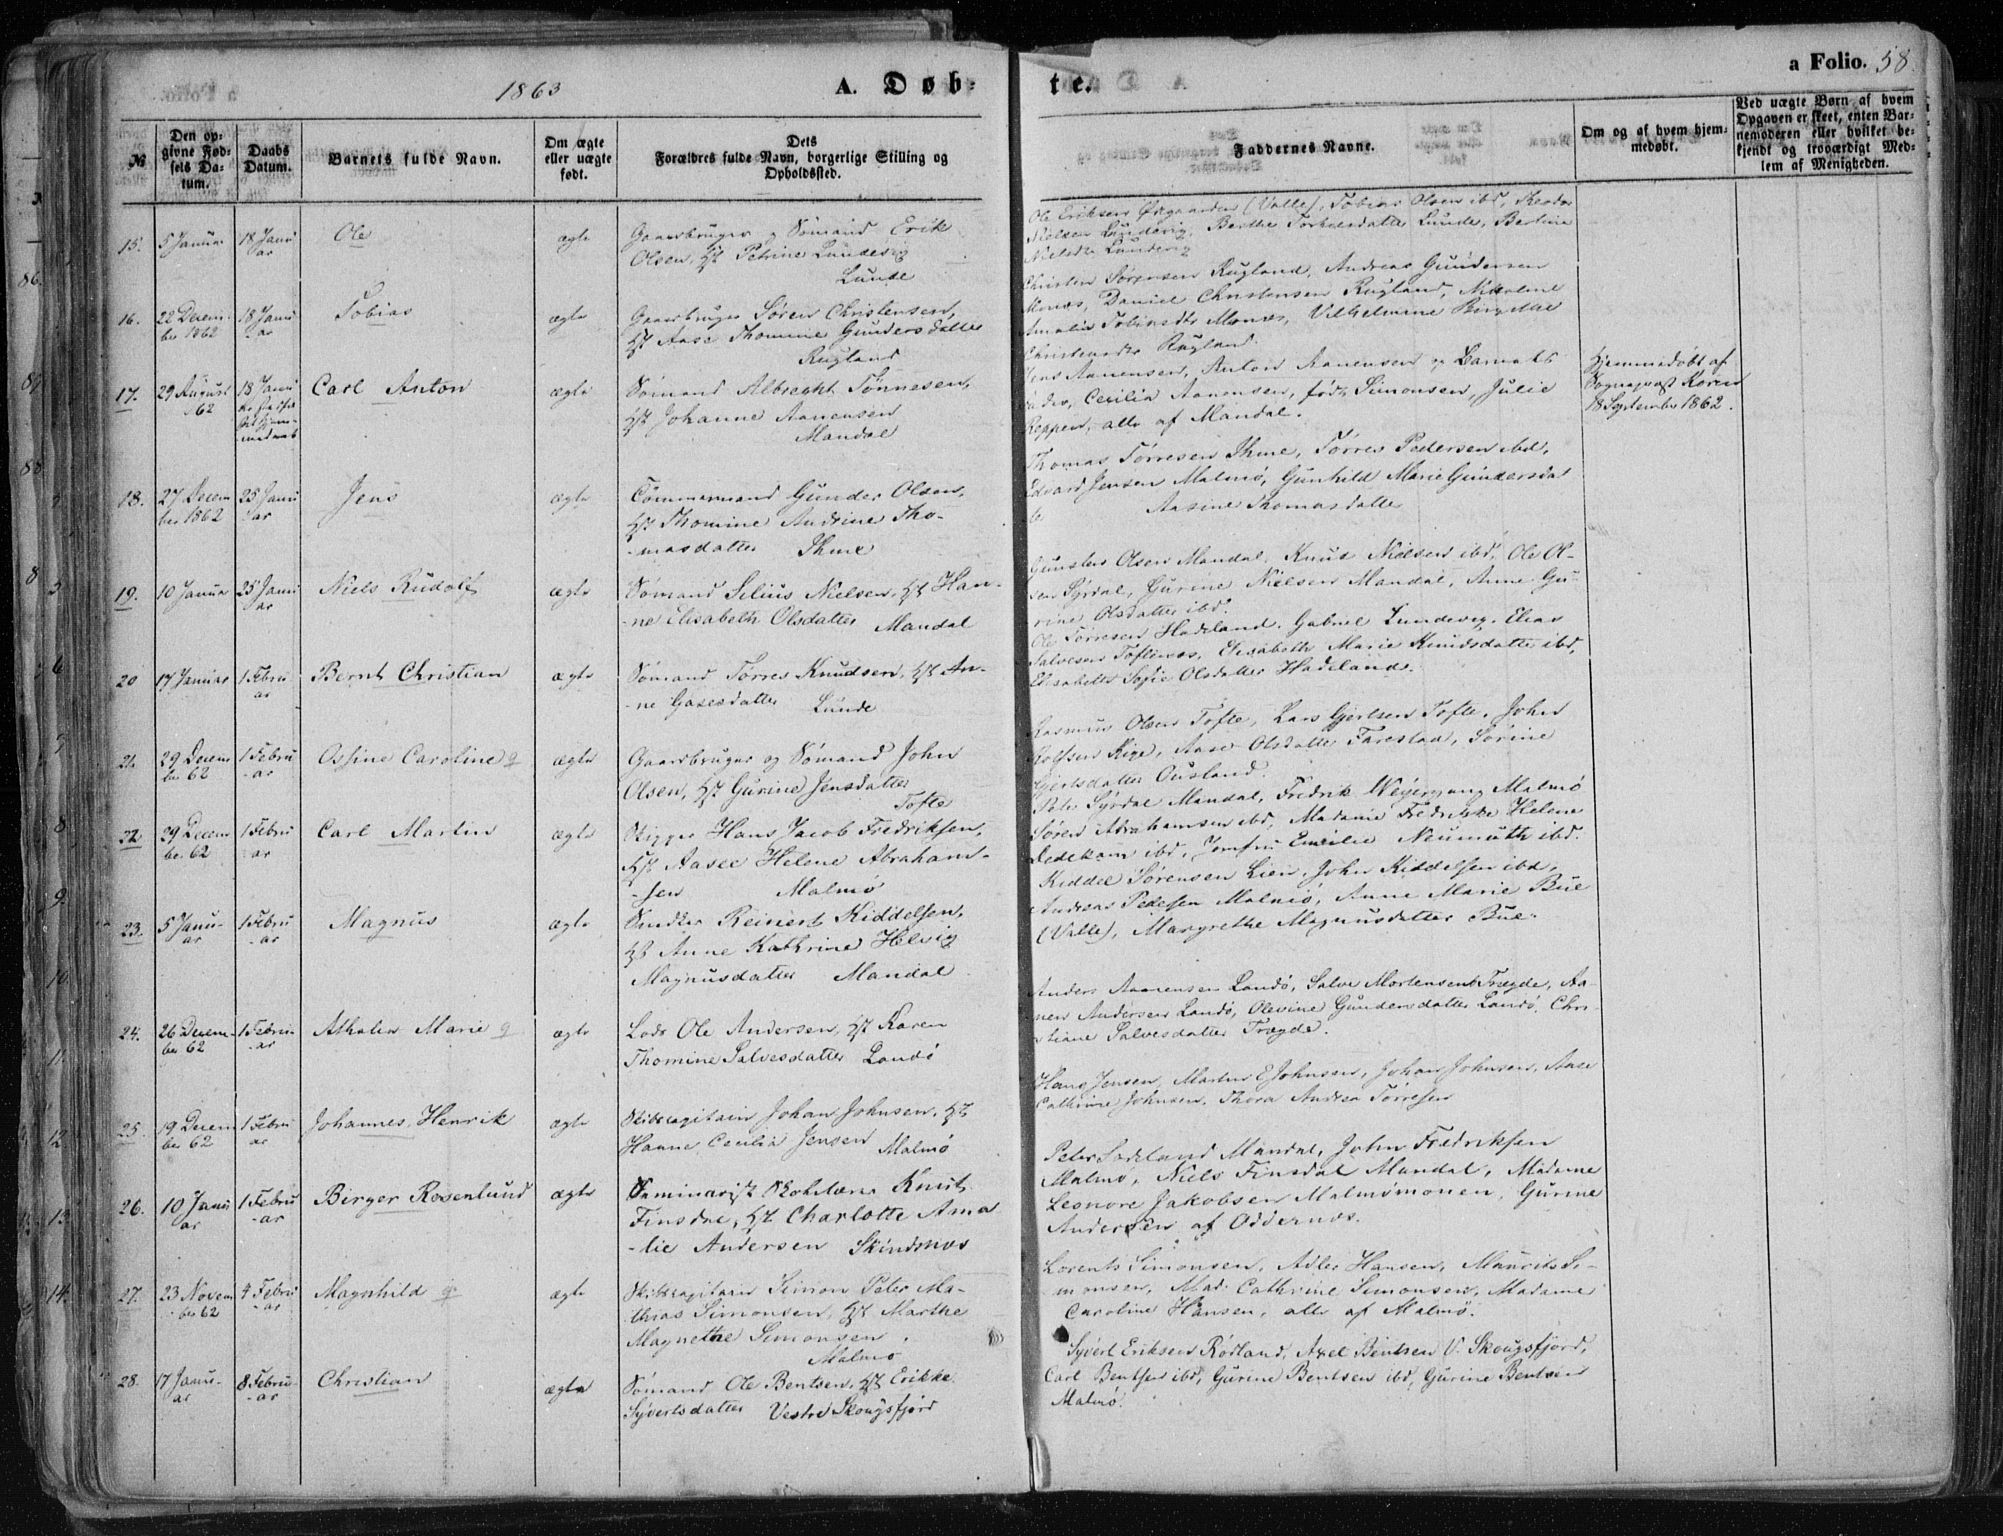 1863
A. Døb-
te.
a Folio. 58.
№
Den op-
givne Fød-
sels Da-
tum.
Daabs
Datum.
Barnets fulde Navn.
Om ægte
eller uægte
født.
Dets
Forældres fulde Navn, borgerlige Stilling og
Opholdssted.
Faddernes Navne.
Om og af hvem hjem-
medøbt.
Ved uægte Børn af hvem
Opgaven er skeet, enten Bar-
nemoderen eller hvilket be-
kjendt og troværdigt Med-
lem af Menigheden.
15.
5 Januar
18 Janu
ar
Ole
ægte
Gaardbruger og Sømand Erik
Olsen, Hst Petrine Lundevig
Lunde
Ole Eriksen Øigaarden (Valle), Tobias Olsen ibd,
Nielsen Lundevig, Berthe Torkelsdatter Lunde, Bertine
Lundevig
16.
22 Decem-
ber 1862
18 Janu
ar
Tobias
ægte
Gaardbruger Søren Christensen,
Hst Aase Thomine Gundersdatter
Rugland
Christen Sørensen Rugland, Andreas Gundersen
Monæs, Daniel Christensen Rugland, Nicoline
Amalia Tobiasdtr Monæs, Vilhelmine
Christensdtr Rugland.
17.
29 August
62
18 Janu
ar
Carl Anton
ægte
Sømand Albrecht Tønnesen,
Hst Johanne Aanensen
Mandal
Jens Aanensen, Anton Aanensen og
Cecilia Aanensen, født Simonsen, Julie
Reppen, alle af Mandal.
Hjemmedøbt af
Sognepræst Koren
18 September 1862.
18.
27 Decem
ber 1862
25 Janu
ar
Jens
ægte
Tømmermand Gunder Olsen,
Hst Thomine Andrine Tho-
-masdatter Ihme
Thomas Tørresen Ihme, Tørres Pedersen ibd,
Edvard Jensen Malmø, Gunhild Marie Gundersdat
ter Aasine Thomasdatter
19.
10 Januar
25 Janu
ar
Niels Rudolf
ægte
Sømand Silius Nielsen, Hst Han-
-ne Elisabeth Olsdatter Mandal
Gunsten Olsen Mandal, Knud Nielsen ibd, Ole Ol-
sen Syrdal, Gurine Nielsen Mandal, Anne Gu-
rine Olsdatter ibd.
20
17 Januar
1 Febru
ar
Bernt Christian
ægte
Sømand Tørres Knudsen, Hst An-
-ne Gasesdatter Lunde
Ole Tørresen Hadeland, Gabriel Lundevig, Elias
Salvesen Toftenæs, Elisabeth Marie Knudsdatter ibd,
Elisabeth Sofie Olsdatter Hadeland.
21.
29 Decem
ber 62
1 Febru
-ar
Ossine Caroline
ægte
Gaardbruger og Sømand John
Olsen, Hst Gurine Jensdatter
Tofte
Rasmus Olsen Tofte, Lars Gjertsen Tofte, John
Rolfsen Rige, Aase Olsdatter Farestad, Sorine
Gjertsdatter Ousland.
22
29 Decem
ber 62
1 Febru
ar
Carl Martin
ægte
Skipper Hans Jacob Fredriksen,
Hst Aasee Helene Abraham-
-sen Malmø
Peter Syrdal Mandal, Fredrik Weyergang Malmø
Søren Abrahamsen ibd, Madame Fredrikke Helene
Dedekam ibd, Jomfru Emilie Neumuth ibd.
23.
5 Janu-
ar
1 Febru
-ar
Magnus
ægte
Snedker Reinert Kiddelsen,
Hst Anne Kathrine Helvig
Magnusdatter Mandal
Kiddel Sørensen Lien, John Kiddelsen ibd,
Andreas Pedersen Malmø, Anne Marie Bue
(Valle), Margrethe Magnusdatter Bue.
24.
26 Decem-
ber 62
1 Febru
-ar
Athalia Marie
ægte
Lods Ole Andersen, Hst Karen
Thomine Salvesdatter Landø
Anders Aanensen Landø, Salve Mortensen Trægde, Aa-
nen Andersen Landø, Olevine Gundersdatter Landø, Chri-
stiane Salvesdatter Trægde.
25.
19 Decem
ber 62
1 Febru
ar
Johannes Henrik
ægte
Skibscapitain Johan Johnsen, Hst
Hanne Cecilia Jensen Malmø
Hans Jensen, Martin E Johnsen, Johan Johnsen, Aase
Cathrine Johnsen, Thora Andrea Tørresen
26.
10 Janu
ar
1 Febru
-ar
Birger Rosenlund
ægte
Seminarist Skolelærer Knut
Finsdal, Hst Charlotte Ama
-lie Andersen Skindsnæs
Peter Sodeland Mandal, John Fredriksen
Malmø, Niels Finsdal Mandal, Madame
Leonore Jakobsen Malmømonen, Gurine
Andersen af Oddernæs.
27.
23 Novem
ber 62
4 Febru
-ar
Magnhild
ægte
Skibscapitain Simon Peter Ma-
thias Simonsen, Hst Marthe
Magnethe Simonsen
Malmø
Lorents Simonsen, Adler Hansen, Maurits Si-
monsen, Mad. Cathrine Simonsen, Madame
Caroline Hansen, alle af Malmø.
28.
17 Janu-
ar
8 Febru
-ar
Christian
ægte
Sømand Ole Bentsen, Hst Erikke
Syvertsdatter Vestre Skougsfjord
Syvert Eriksen Rødland, Axel Bentsen V. Skougsfjord,
Carl Bentsen ibd, Gurine Bentsen ibd, Gurine Bentsen
Malmø.